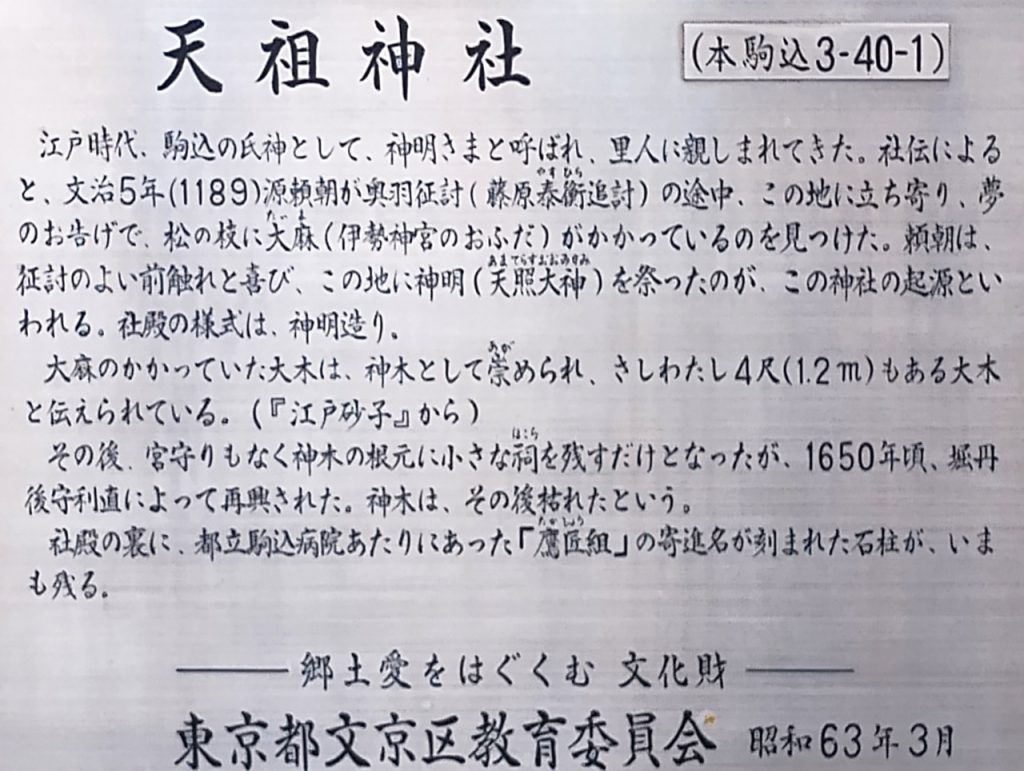 天祖神社 (本駒込3-40-1)
江戸時代、駒込の氏神として、神明さまと呼ばれ、里人に親しまれてきた。社伝による
と、文治5年(1189)源頼朝が奥羽征討(藤原泰衡追討)の途中、この地に立ち寄り、夢
のお告げで、松の枝に大麻(伊勢神宮のおふだ)がかかっているのを見つけた。頼朝は、
征討のよい前触れと喜び、この地に神明(天照大神)を祭ったのが、この神社の起源とい
われる。社殿の様式は、神明造り。
大麻のかかっていた大木は、神木として崇められ、さしわたし4尺(1.2m)もある大木
と伝えられている。(『江戸砂子』から)
その後、宮守りもなく神木の根元に小さな祠を残すだけとなったが、1650年頃、堀丹
後守利直によって再興された。神木は、その後枯れたという。
社殿の裏に、都立駒込病院あたりにあった「鷹匠組」の寄進名が刻まれた石柱が、いま
も残る。
郷土愛をはぐくむ 文化財
東京都文京区教育委員会 昭和63年3月